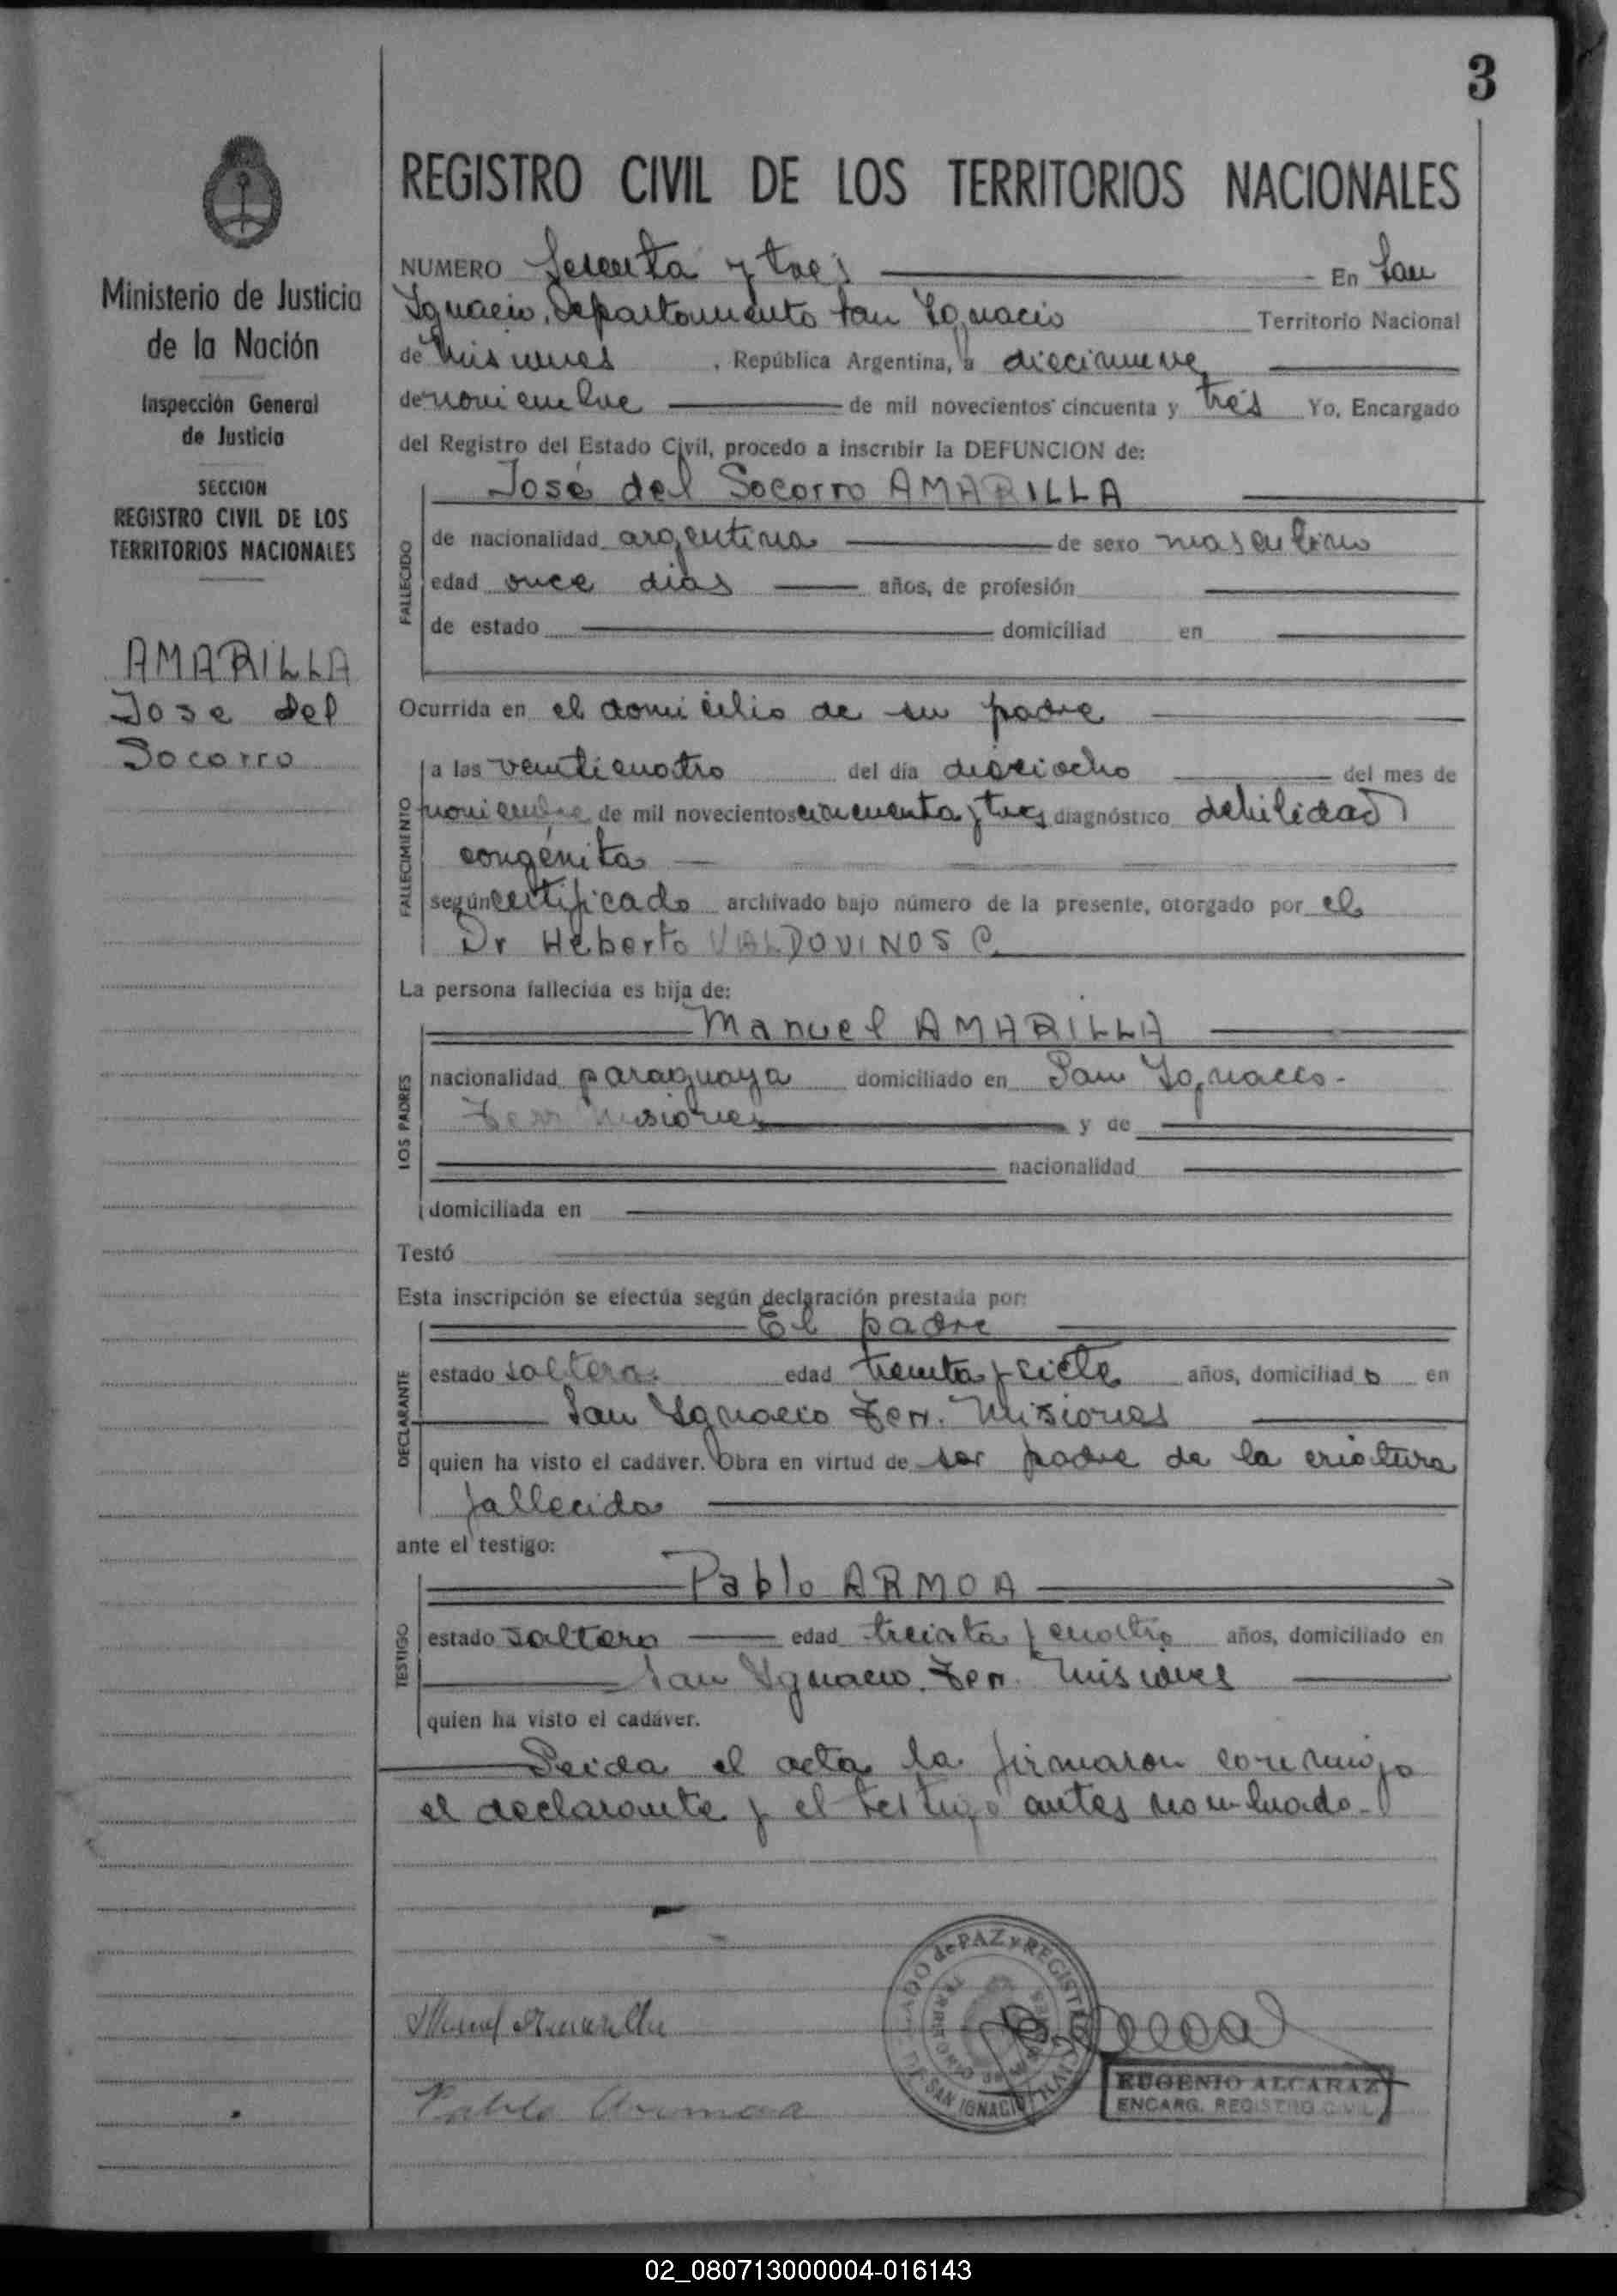 3
REGISTRO CIVIL DE LOS TERRITORIOS NACIONALES
Ministerio de Justicia
de la Nación
Inspección General
de Justicia
SECCION
REGISTRO CIVIL DE LOS
TERRITORIOS NACIONALES
AMARILLA
Jose del
Socorro
NUMERO Sesenta y tres En San
Ignacio, Departamento San Ignacio Territorio Nacional
de Misiones , República Argentina, a diecinueve
de noviembre de mil novecientos cincuenta y tres Yo, Encargado
del Registro del Estado Civil, procedo a inscribir la DEFUNCION de:
José del Socorro AMARILLA
FALLECIDO
de nacionalidad argentina de sexo masculino
edad once dias años, de profesión
de estado domiciliad en
Ocurrida en el domicilio de su padre
FALLECIMIENTO
a las veinticuatro del día dieciocho del mes de
noviembre de mil novecientos cincuenta y tres diagnóstico debilidad
congénita
según certificado archivado bajo número de la presente, otorgado por el
Dr Heberto VALDOVINOS C.
La persona fallecida es hija de:
LOS PADRES
Manuel AMARILLA
nacionalidad paraguaya domiciliado en San Ignacio-
Terr Misiones y de
nacionalidad
domiciliada en
Testó
Esta inscripción se efectúa según declaración prestada por:
DECLARANTE
El padre
estado soltero edad treinta y siete años, domiciliado en
San Ignacio Terr. Misiones
quien ha visto el cadáver. Obra en virtud de ser padre de la criatura
fallecida
ante el testigo:
TESTIGO
Pablo ARMOA
estado soltero edad treinta y cuatro años, domiciliado en
San Ignacio. Terr. Misiones
quien ha visto el cadáver.
Leida el acta la firmaron conmigo
el declarante y el testigo antes nombrado.
JUZGADO de PAZ y REGISTRO CIVIL
DE SAN IGNACIO
Manuel Amarilla
Pablo Armoa
EUGENIO ALCARAZ
ENCARG. REGISTRO CIVIL
02_080713000004-016143